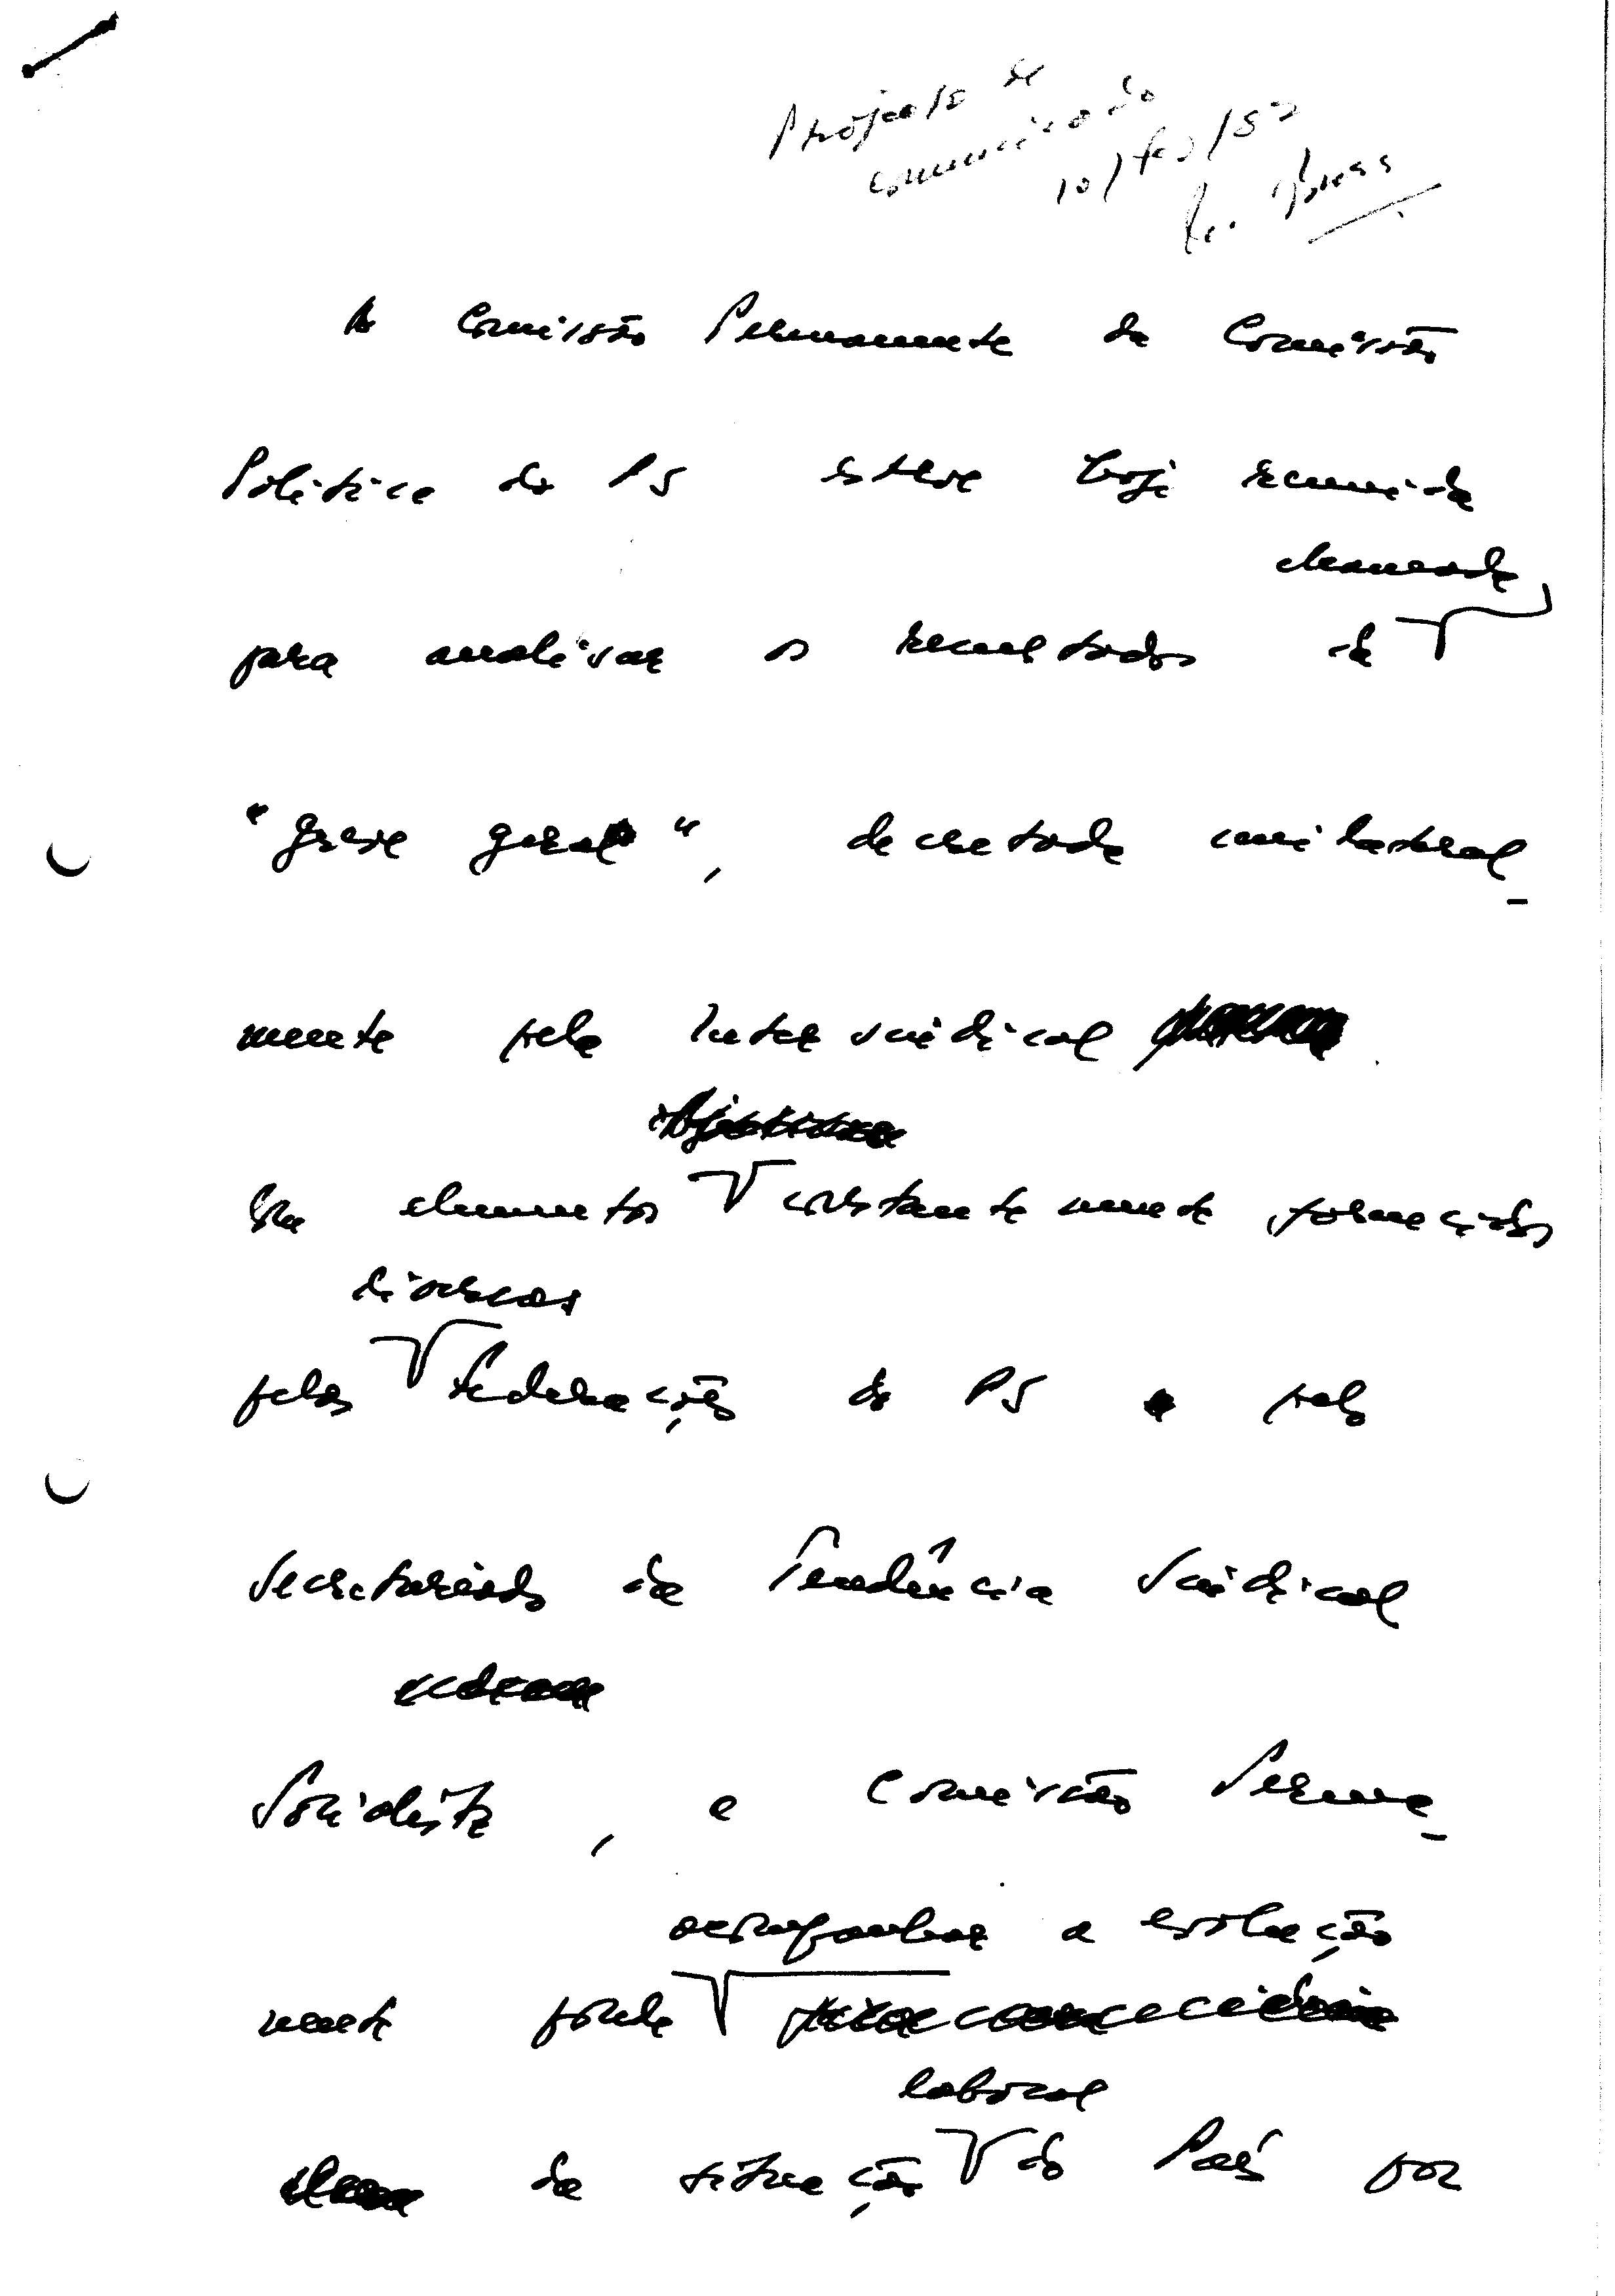 Projecto de
comunicado
10/fev/82
A Comissão Permanente da Comissão
Política do PS esteve hoje reunida
para analisar os resultados da
chamada
"greve geral", decretada unilateral-
mente pela Intersindical
Em elementos constantemente fornecidos
diversas
pelas Federações do PS e pelo
Secretariado da Tendência Sindical
Socialista, a Comissão Perma-
acompanhar a evolução
nente pôde
laboral
da situação do País por